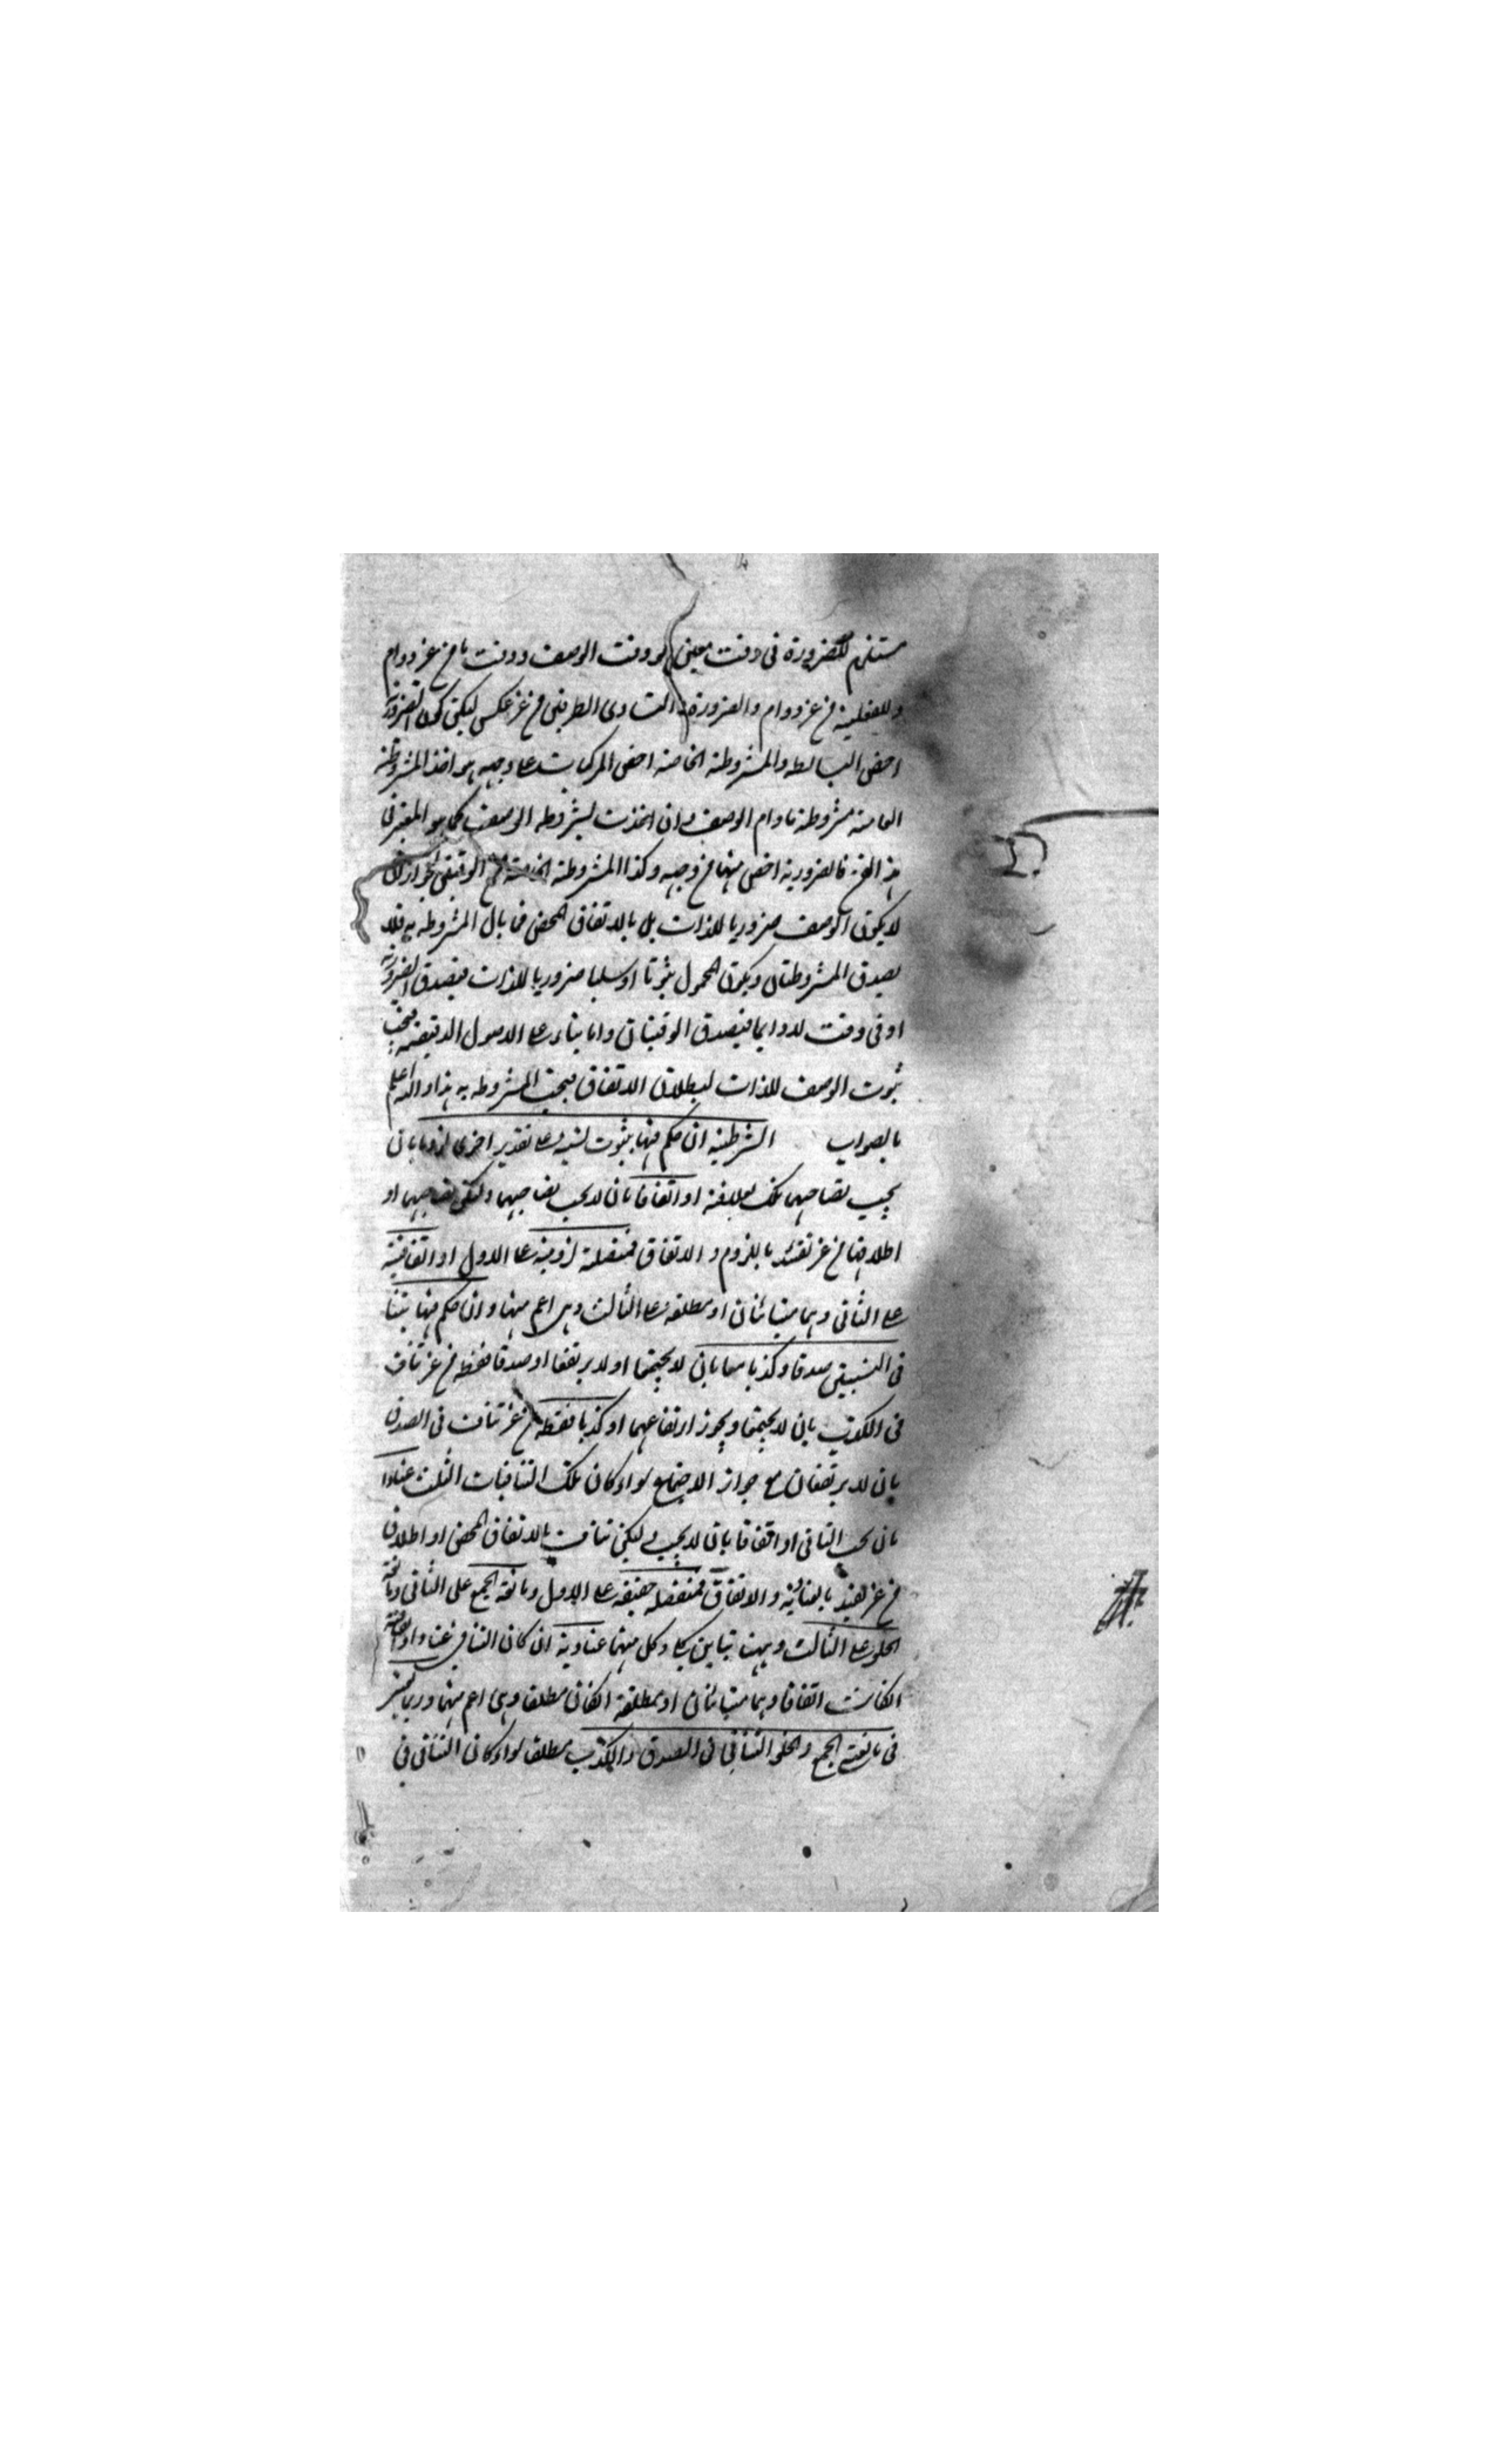 مستلزم للضرورة فى وقت معين هو وقت الوصف ووقت ما من غير دوام
وللفعلية من غير دوام والضرورة لتساوى الطرفين من غير عكس ليكن كون الضرورة
اخص البسائط والمشروطة الخاصة اخص المركبات على وجه هو اخذ المشروطة
العامة مشروطة مادام الوصف وان اخذت بشرط الوصف كما هو المعتبر فى
هذا الفن فالضرورية اخص منها من وجه وكذا المشروطة الخاصة مع الوقتيتين لجواز ان
لا يكون الوصف ضروريا للذات بل بالاتفاق المحض فما بال المشروطة به فلا
يصدق المشروطتان ويكون المحمول ثبوتا او سلبا ضروريا للذات فيصدق الضرورية
او فى وقت لا دوايما فيصدق الوقتيتان واما بناء على الاصول الدقيقة فيجب
ثبوت الوصف للذات لبطلان الاتفاق فيجب المشروطة به هذا والله اعلم
بالصواب الشرطية ان حكم فيها بثبوت نسبة على تقدير اخرى لزوما بان
يجب تصاحبهما تلك لعلاقة او اتفاقا بان لا يجب تصاحبهما ولكن تصاحبهما او
اطلاقا من غير تقييد باللزوم والاتفاق فمتصلة لزومية على الاول او اتفاقية
على الثانى وهما متباينان او مطلقة على الثالث وهى اعم منهما وان حكم فيها بتنا
فى النسبتين صدقا وكذبا معا بان لا يجتمعا او لا يرتفعا او صدقا فقط من غير تناف
فى الكذب بان لا يجتمعا ويجوز ارتفاعهما او كذبا فقط من غير تناف فى الصدق
بان لا يرتفعان مع جواز الاجتماع سواء كان تلك التنافيات الثلث عنادا
بان يجب التنافى او اتفاقا بان لا يجب ولكن تناف بالاتفاق المحض او اطلاق
من غير تقييد بالعنادية والاتفاق فمنفصلة حقيقة على الاول ومانعة الجمع على الثانى ومانعة
الخلو على الثالث وبينها تباين كلى وكل منها عنادية ان كان التنافى عنادا واتفاقية
ان كانت اتفاقا وهما متباينان او مطلقة ان كان مطلقا وهى اعم منهما وربما يعتبر
فى مانعة الجمع والخلو التنافى فى الصدق والكذب مطلقا سواء كان التنافى فى